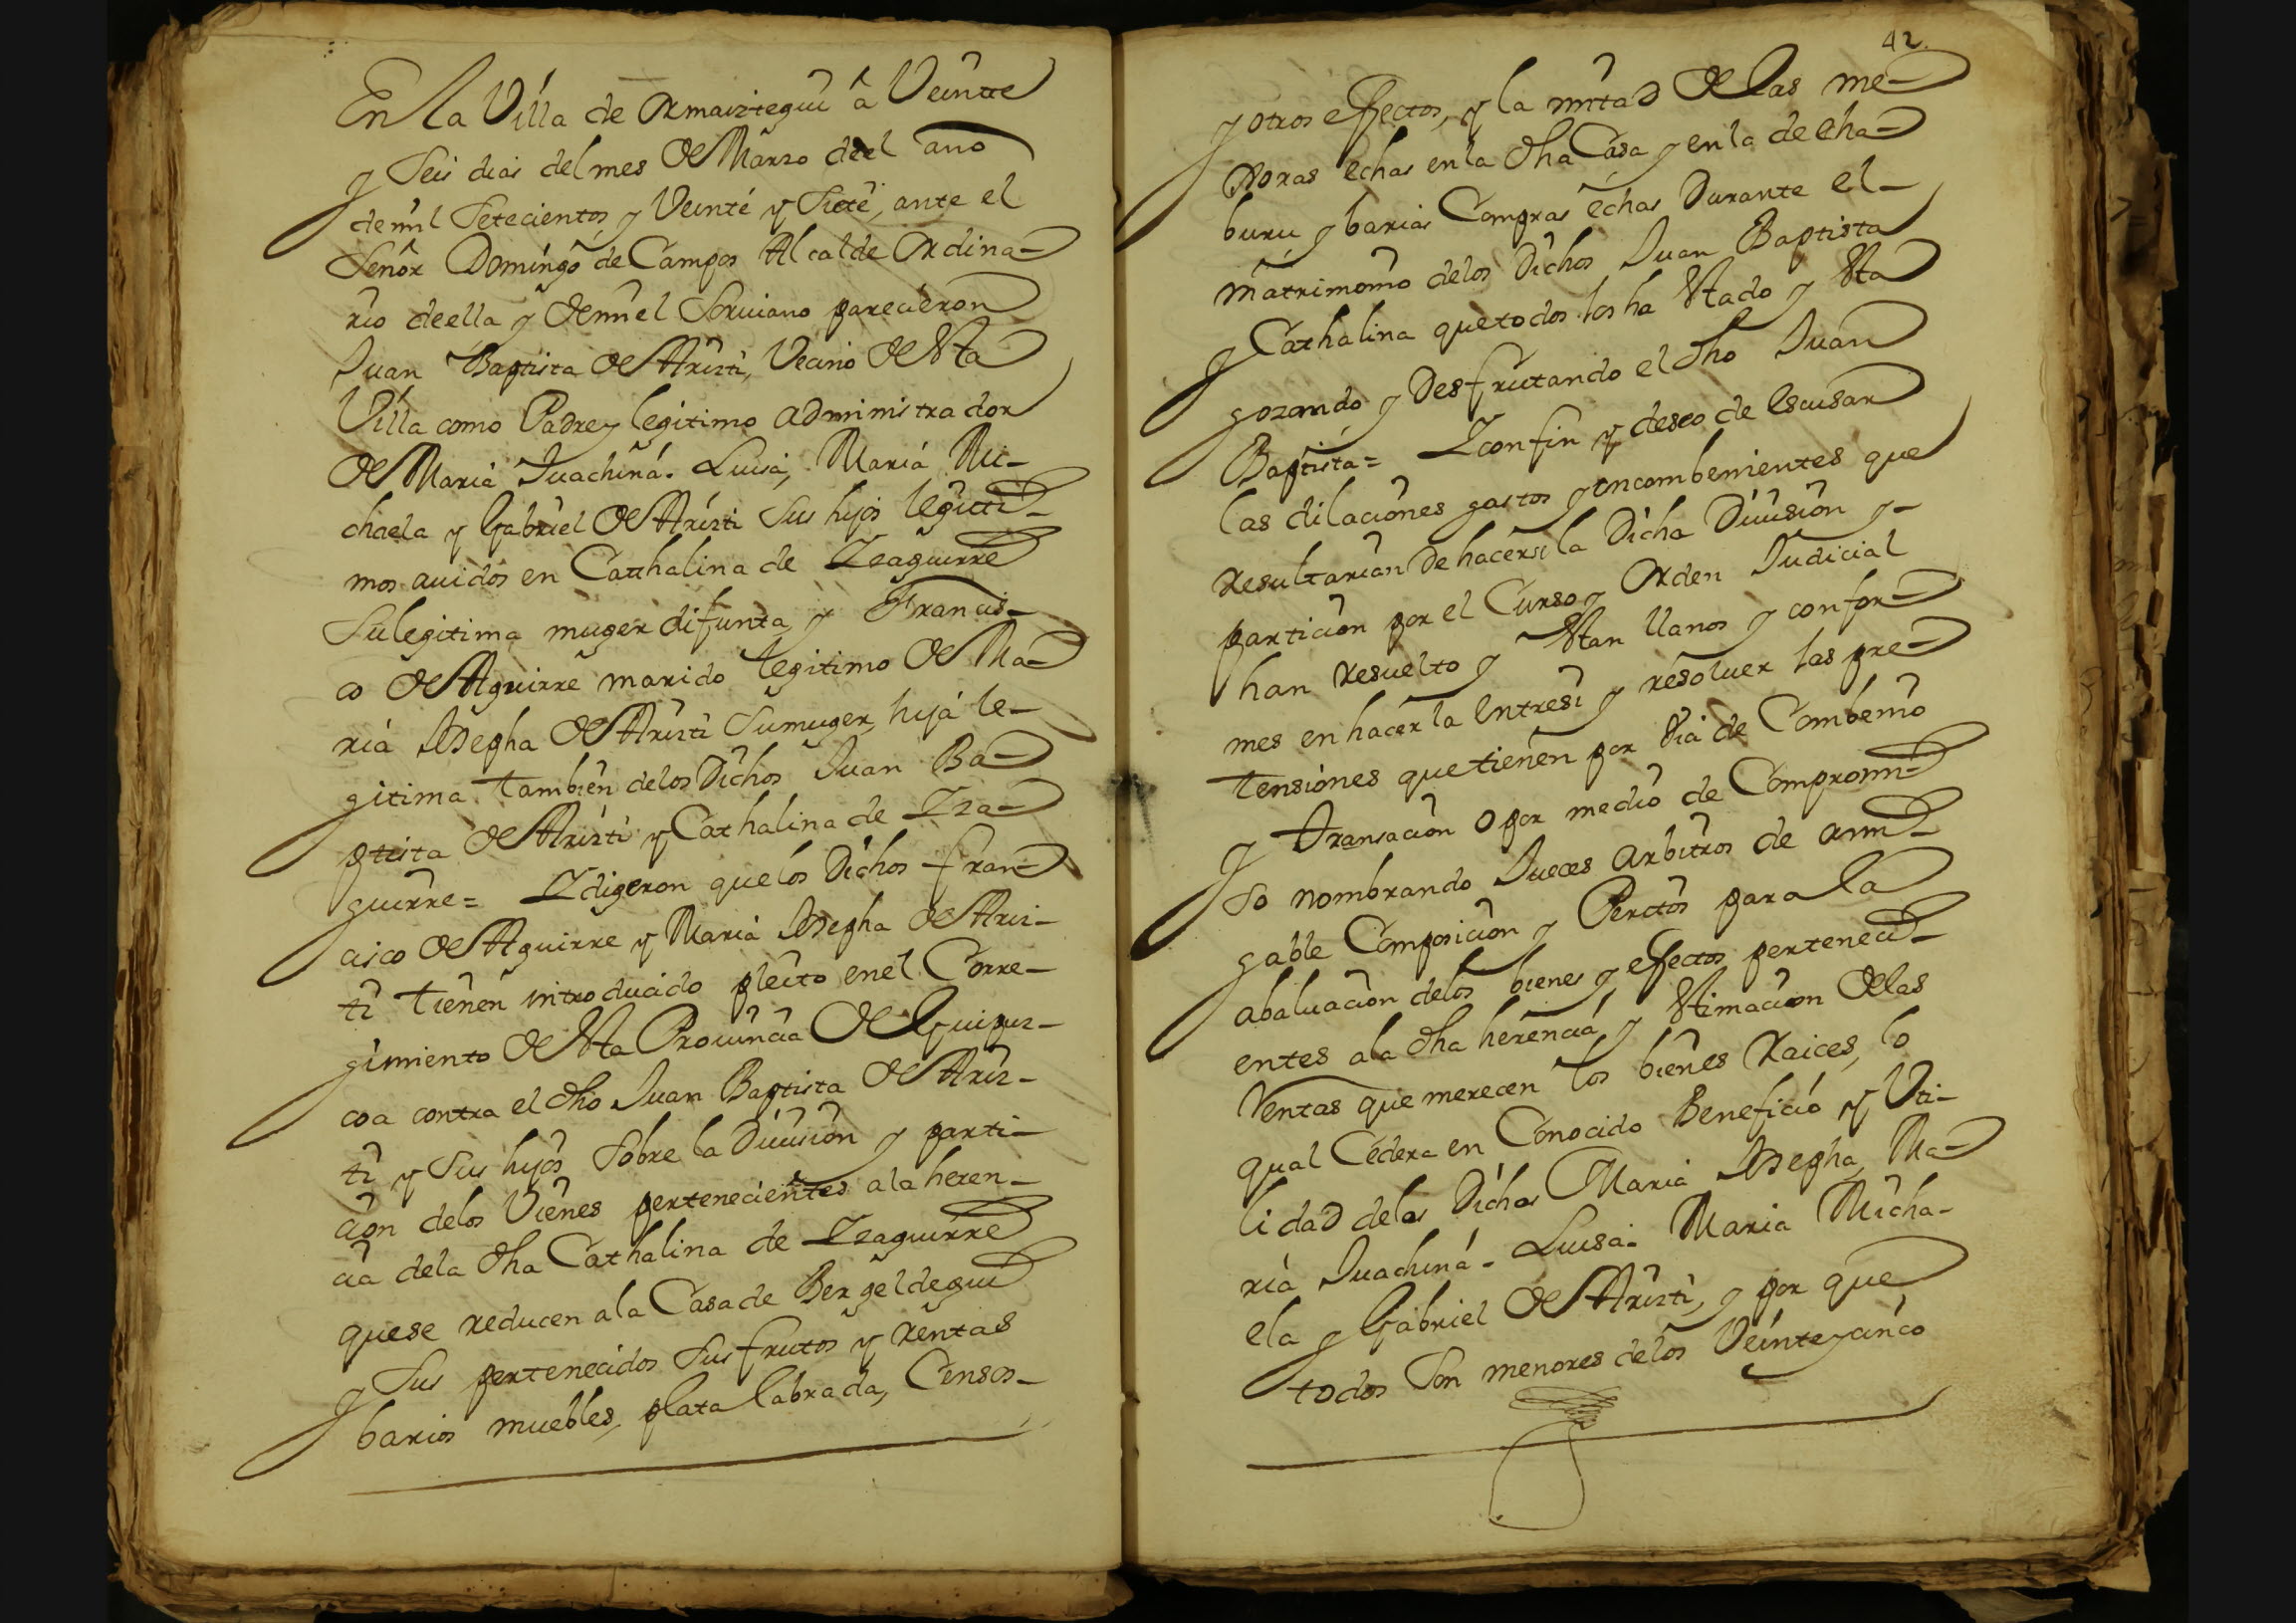 En la Villa de Ormaiztegui â Veintte
y Seis dias del mes de Marzo deel año
de mil Setecientos y Veinte y Siete, ante el
Señor Domingo de Campos Alcalde ordina-
rio de ella y de mi el Scriuano parecieron
Juan Baptista de Aristi, Vecino de Sta
Villa como Padre y legitimo administrador
de Maria Juachina. Luisa, Maria Mi-
chaela y Gabriel de Aristi Sus hijos legiti-
mos auidos en Catthalina de Yzaguirre
Su legitima muger difunta, y Francis-
co de Aguirre marido legitimo de Ma-
ria Josepha de Aristi Su muger, hija le-
gitima tambien de los Dichos Juan Ba-
ptista de Aristi y Cathalina de Yza-
guirre = Y digeron que los Dichos fran-
cisco de Aguirre y Maria Josepha de Aris-
ti tienen introducido pleito en el Corre-
gimiento de Sta Prouincia de Guipuz-
coa contra el dho Juan Baptista de Aris-
ti y Sus hijos Sobre la Diuision y parti-
cion de los Vienes pertenecientes a la heren-
cia de la dha Cathalina de Yzaguirre
que se reducen a la Casa de Bergeldegui
y Sus pertenecidos Sus frutos y rentas
barios muebles, plata labrada, Censos-
42.
y otros effectos, y la mitad de las me-
xoras echas en la dha Casa y en la de echa-
buru y barias Compras echas Durante el-
matrimonio de los Dichos Juan Baptista
y Cathalina que todos los ha Stado y Sta
gozando y Desfrutando el dho Juan
Baptista = Y con fin y deseo de escusar
las dilaciones gastos y incombenientes que
resultarian De hacerse la Dicha Diuision y-
particion por el Curso y orden Judicial
han resuelto y Stan llanos y confor-
mes en hacer la entre si y resoluer las pre-
tensiones que tienen por Via de Combenio
y transacion o por medio de Compromi-
so nombrando Jueces arbitros de ami-
gable Composicion y Peritos para la
abaluacion de los bienes y effectos perteneci-
entes a la dha herencia, y Stimacion de las
Ventas que merecen los bienes raices, lo
qual Cedera en Conocido Beneficio y Uti-
lidad de las Dichas Maria Josepha, Ma-
ria Juachina - Luisa - Maria Micha-
ela y Gabriel de Aristi, y por que
todos Son menores de los Veinte y cinco